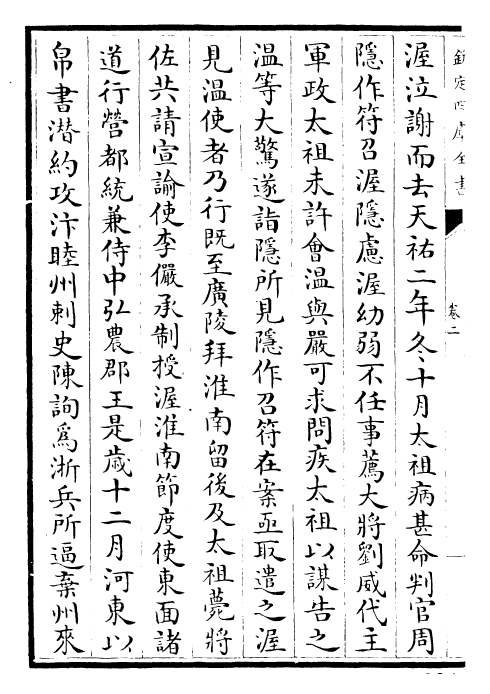 欽定四庫全書
卷二
渥泣謝而去天祐二年冬十月太祖病甚命判官周
隱作符召渥隱慮渥幼弱不任事薦大將劉威代主
軍政太祖未許會溫與嚴可求問疾太祖以謀告之
溫等大驚遂詣隱所見隱作召符在案亟取遣之渥
見溫使者乃行既至廣陵拜淮南留後及太祖薨將
佐共請宣諭使李儼承制授渥淮南節度使東面諸
道行營都統兼侍中弘農郡王是歲十二月河東以
帛書潜約攻汴睦州刺史陳詢爲浙兵所逼棄州來